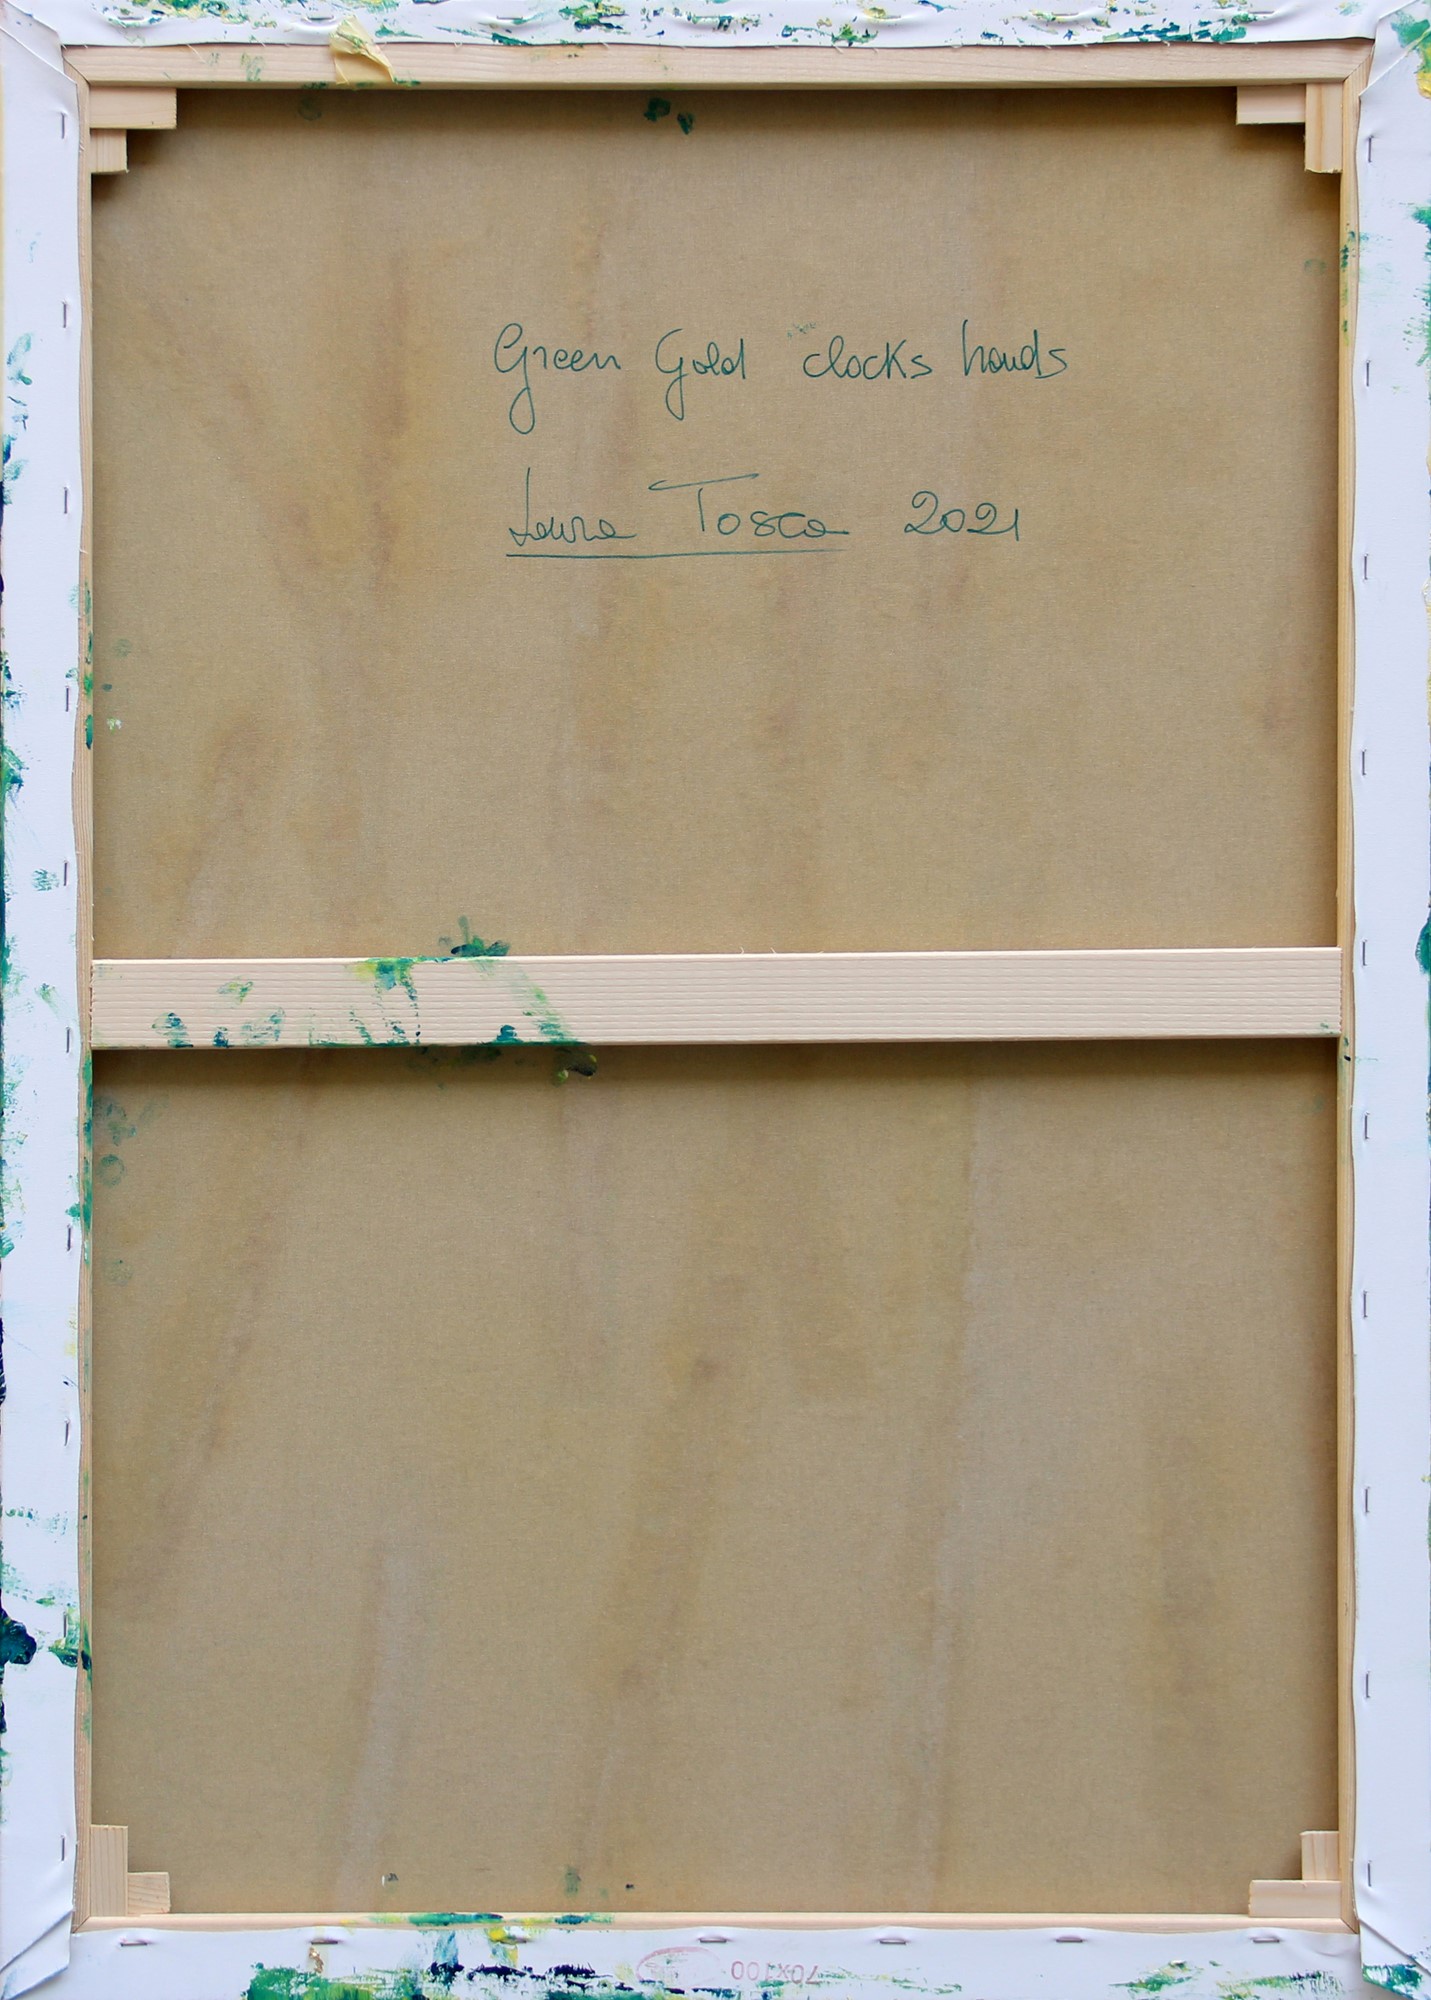 Green Gold clocks hands
Laura Tosca 2021
70x100